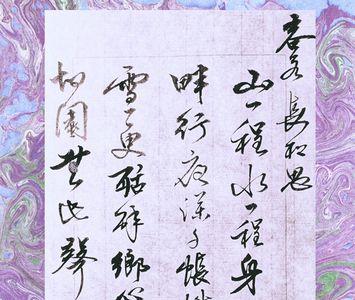 容若 長相思
山一程水一程身
畔行夜深千帳燈
雪一更聒碎鄉心
故園無此聲